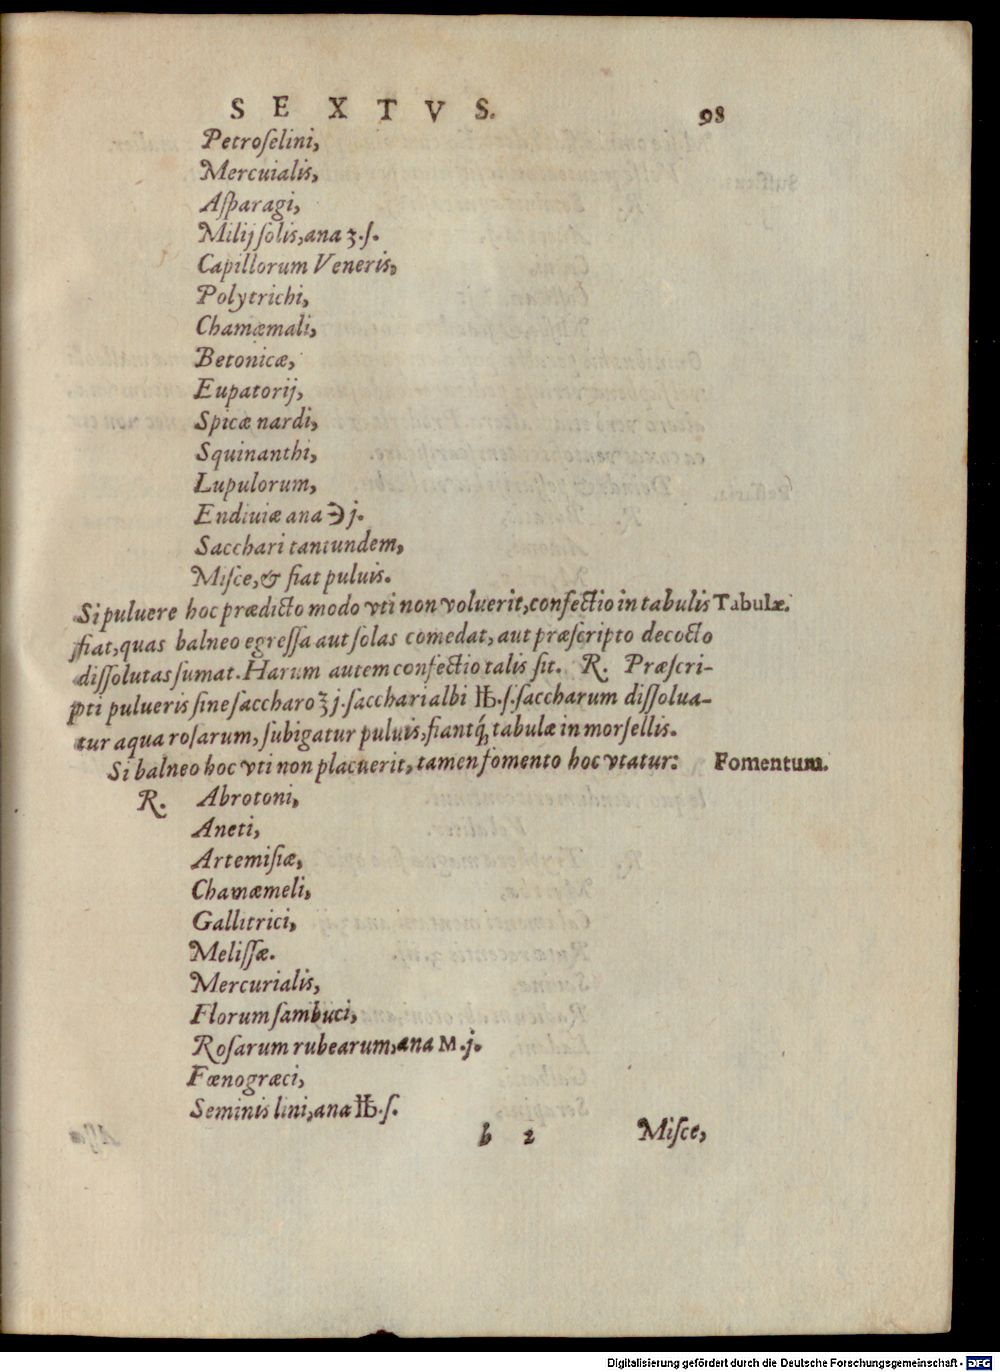 SEXTVS. 98
Petroſelini,
Mercuialis,
Aſparagi,
Milij ſolis, ana ʒ.ſ.
Capillorum Veneris,
Polytrichi,
Chamæmali,
Betonicæ,
Eupatorij,
Spicæ nardi,
Squinanthi,
Lupulorum,
Endiuiæ ana ℈ j.
Sacchari tantundem,
Miſce, & fiat puluis.
Si puluere hoc prædicto modo vti non voluerit, confectio in tabulis Tabulæ.
fiat, quas balneo egreſſa aut ſolas comedat, aut præſcripto decocto
diſſolutas ſumat. Harum autem confectio talis ſit. R. Præſcri-
pti pulueris ſine ſaccharo ʒ j. ſacchari albi ℔.ſ. ſaccharum diſſolua-
tur aqua roſarum, ſubigatur puluis, fiantq́; tabulæ in morſellis.
Si balneo hoc vti non placuerit, tamen fomento hoc vtatur: Fomentum.
R. Abrotoni,
Aneti,
Artemiſiæ,
Chamæmeli,
Gallitrici,
Meliſſæ.
Mercurialis,
Florum ſambuci,
Roſarum rubearum, ana M.j.
Fœnogræci,
Seminis lini, ana ℔.ſ.
b 2 Miſce,
Digitalisierung gefördert durch die Deutsche Forschungsgemeinschaft - DFG